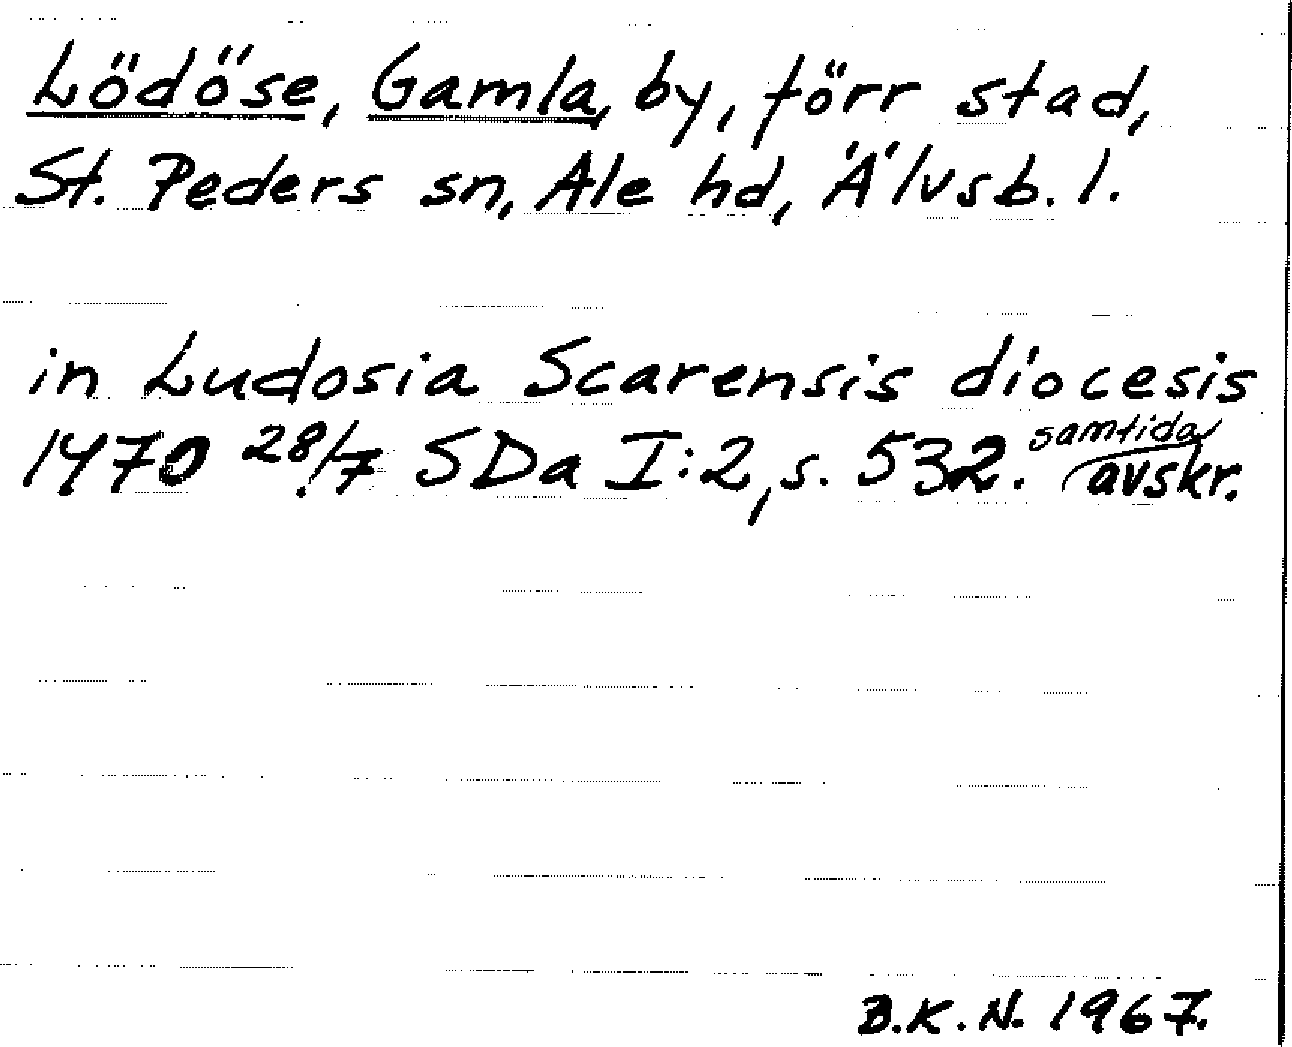 Lödöse, Gamla, by, förr stad,
St. Peders sn, Ale hd, Älvsb. l.
in Ludosia Scarensis diocesis
1470 28/7 SDa I:2, s. 532. samtida avskr.
B.K.N. 1967.